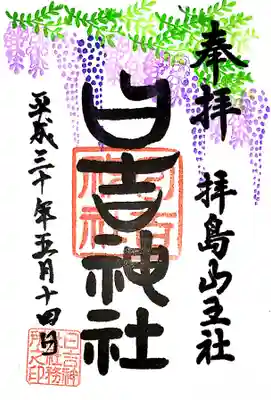 奉拝
拝島山王社
日吉神社
平成三十年五月十四日
日吉神
社社務
所之印